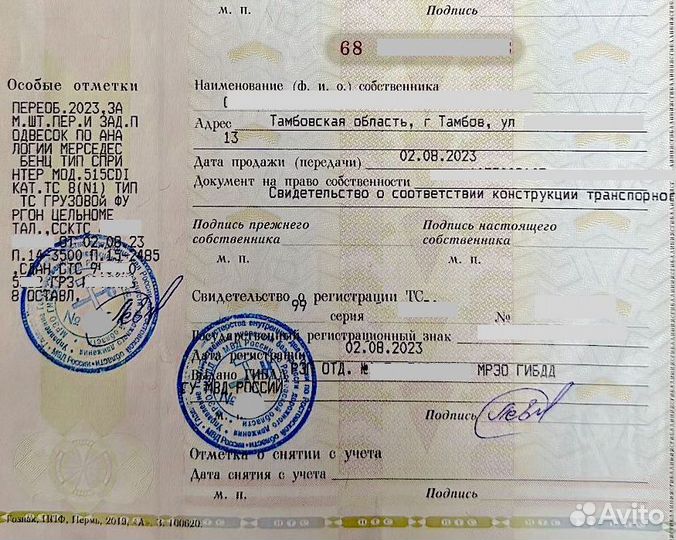 м. п. Подпись
68
Особые отметки
ПЕРЕОБ.2023,ЗА
М.ШТ.ПЕР.И ЗАД.П
ОДВЕСОК ПО АНА
ЛОГИИ МЕРСЕДЕС
БЕНЦ ТИП СПРИ
НТЕР МОД.515CDI
КАТ.ТС В(N1) ТИП
ТС ГРУЗОВОЙ ФУ
РГОН ЦЕЛЬНОМЕ
ТАЛ.,ССКТС
ОТ 02.08.23
П.14-3500 П.15-2485
,СДАН.СТС 9
ОСТАВЛ.
Наименование (ф. и. о.) собственника
Адрес Тамбовская область, г Тамбов, ул
13
Дата продажи (передачи) 02.08.2023
Документ на право собственности
Свидетельство о соответствии конструкции транспорно
Подпись прежнего собственника
Подпись настоящего собственника
м. п. м. п.
Свидетельство о регистрации ТС
99
серия №
Государственный регистрационный знак
Дата регистрации 02.08.2023
Выдано ГИБДД РЭП ОТД. № МРЭО ГИБДД
ГУ МВД РОССИИ
Подпись
Отметка о снятии с учета
Дата снятия с учета
м. п. Подпись
Гознак, ППФ, Пермь, 2019, «А». З. 100620.
Avito